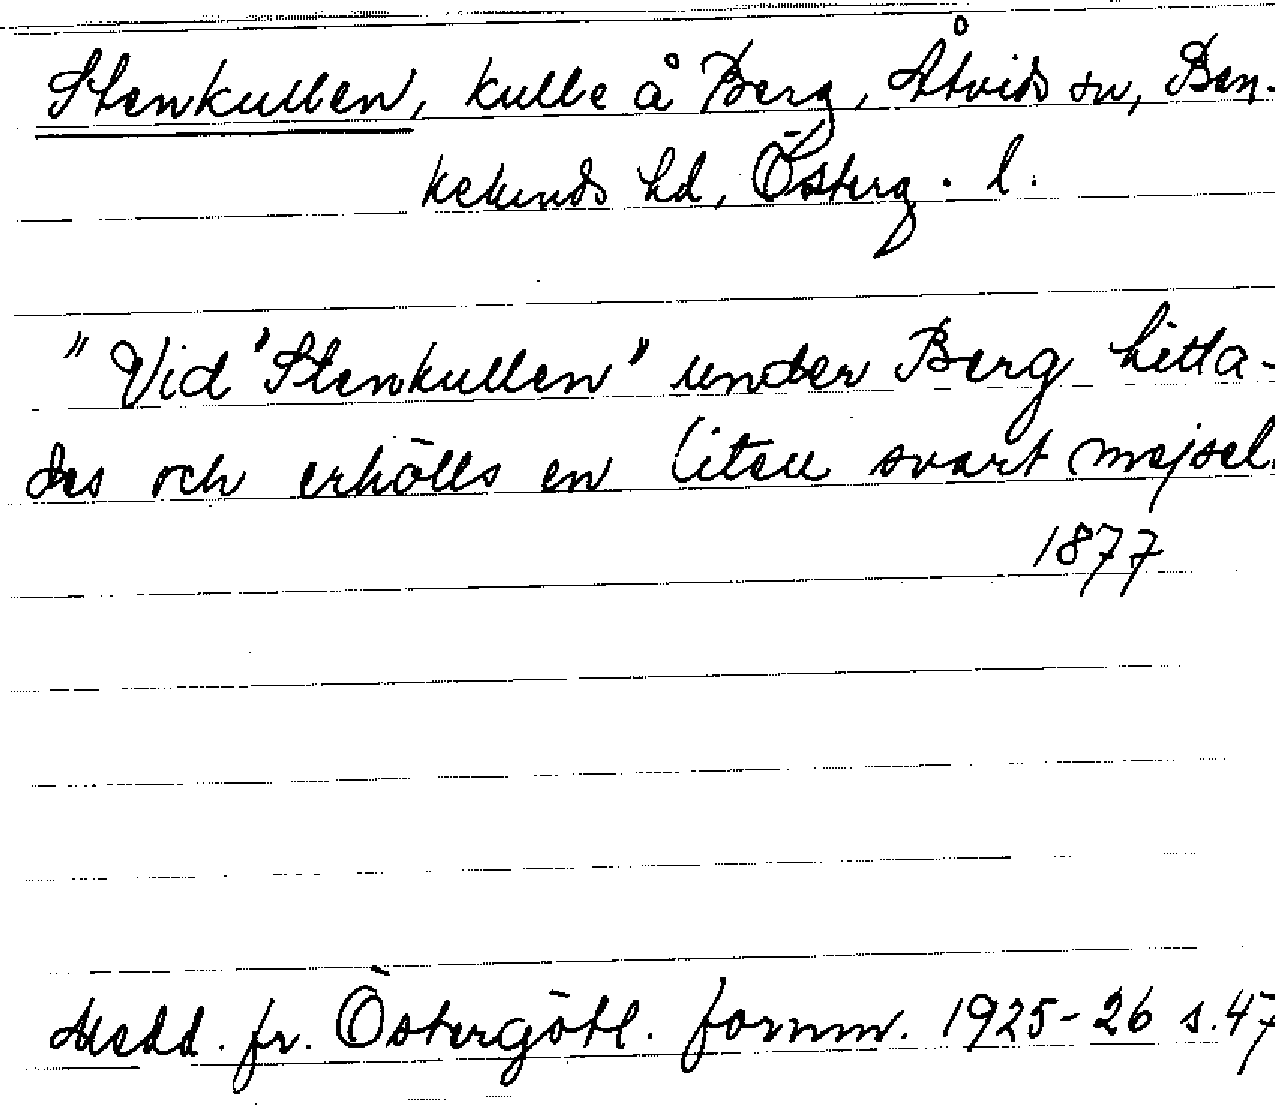 Stenkullen, kulle å Berg, Åtvids sn, Ban-
kekinds hd, Österg. l.
"Vid "Stenkullen" under Berg hitta-
des och erhölls en liten svart mejsel.
1877
Medd. fr. Östergötl. fornm. 1925-26 s.47